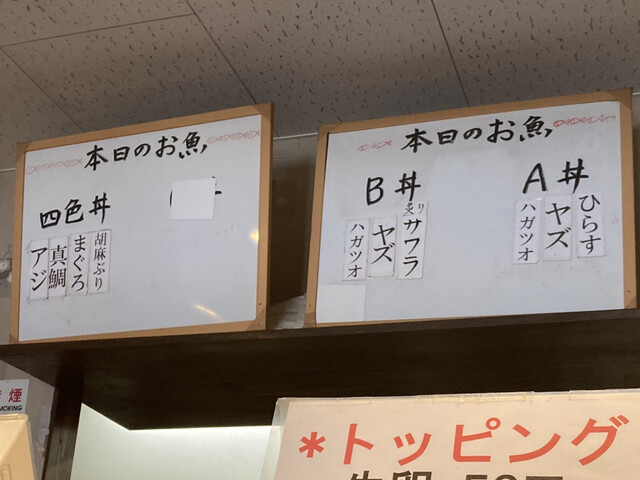 本日のお魚
A丼
ひらす
ヤズ
ハガツオ
B丼
炙り
サワラ
ヤズ
ハガツオ
本日のお魚
四色丼
胡麻ぶり
まぐろ
真鯛
アジ
煙
MOKING
*トッピング